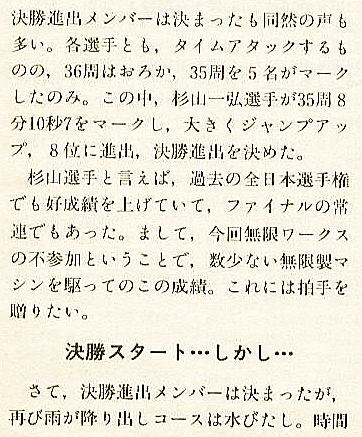 決勝進出メンバーは決まったも同然の声も
多い。各選手とも，タイムアタックするも
のの，36周はおろか，35周を5名がマーク
したのみ。この中，杉山一弘選手が35周8
分10秒7をマークし，大きくジャンプアッ
プ，8位に進出，決勝進出を決めた。
　杉山選手と言えば，過去の全日本選手権
でも好成績を上げていて，ファイナルの常
連でもあった。まして，今回無限ワークス
の不参加ということで，数少ない無限製マ
シンを駆ってのこの成績。これには拍手を
贈りたい。
決勝スタート…しかし…
　さて，決勝進出メンバーは決まったが，
再び雨が降り出しコースは水びたし。時間